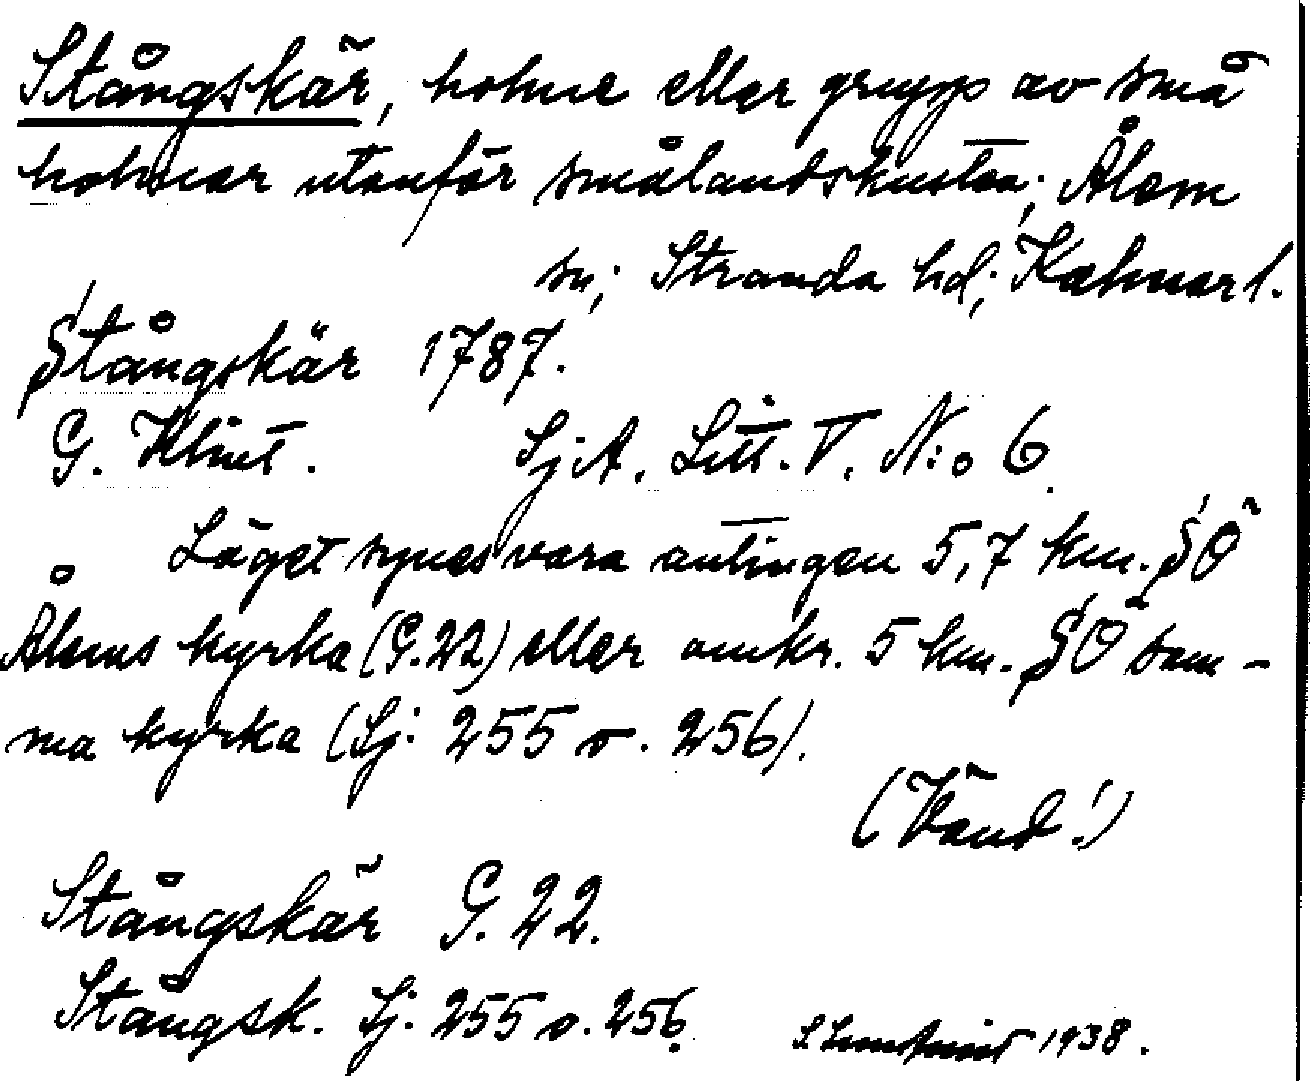 Stångskär, holme eller grupp av små
holmar utanför smålandskusten; Ålem
sn; Stranda hd; Kalmar l.
Stångskär 1787.
G. Klint. SjA. Litt. V. N:o 6.
Läget synes vara antingen 5,7 km. SÖ
Ålems kyrka (G.22) eller omkr. 5 km. SÖ sam-
ma kyrka (Sj: 255 o. 256).
(Vänd!)
Stångskär G. 22.
Stångsk. Sj. 255 o. 256.
1938.